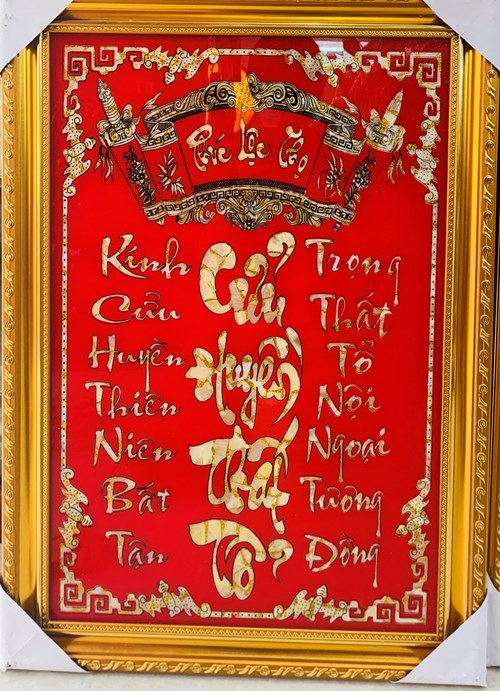 Phúc Lộc Thọ
Kính
Cửu
Huyền
Thiên
Niên
Bất
Tận
Cửu
Huyền
Thất
Tổ
Trọng
Thất
Tổ
Nội
Ngoại
Tương
Đồng